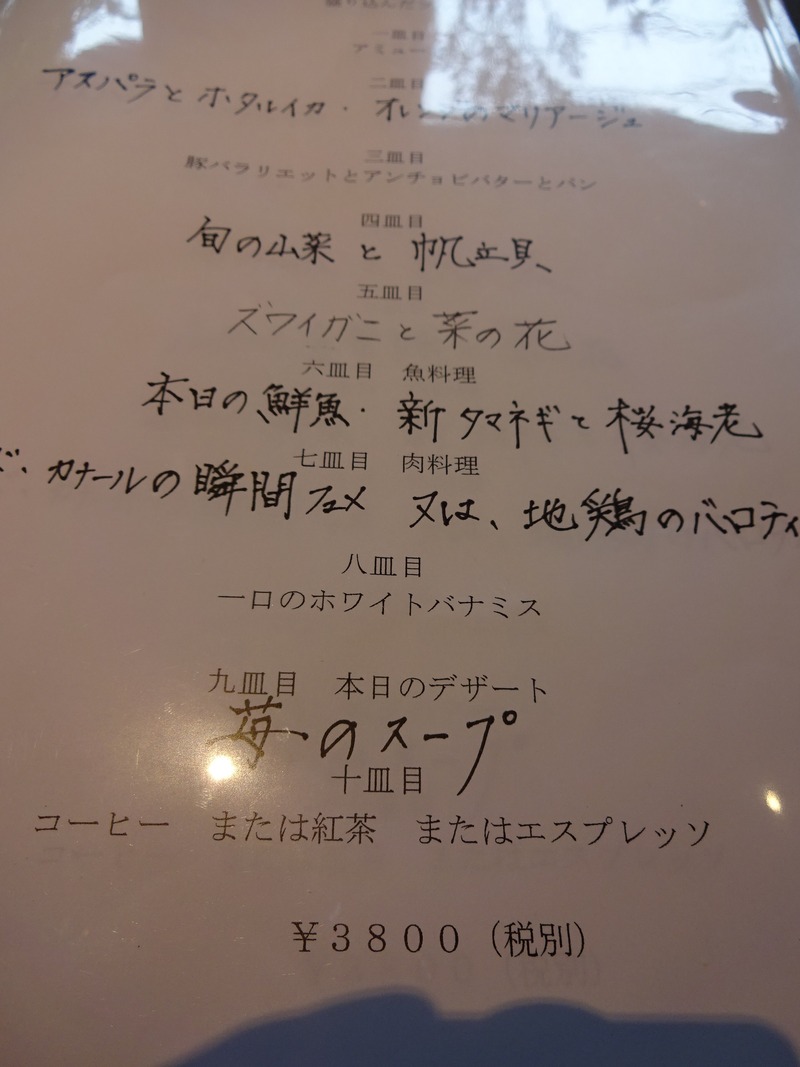 盛り込んだ
一皿目
アミュー
二皿目
アスパラとホタルイカ・オレンジのマリアージュ
三皿目
豚バラリエットとアンチョビバターとパン
四皿目
旬の山菜と帆立貝、
五皿目
ズワイガニと菜の花
六皿目 魚料理
本日の鮮魚・新タマネギと桜海老
七皿目 肉料理
カナールの瞬間フュメ 又は、地鶏のバロティ
八皿目
一口のホワイトバナミス
九皿目 本日のデザート
苺のスープ
十皿目
コーヒー または紅茶 またはエスプレッソ
￥３８００（税別）